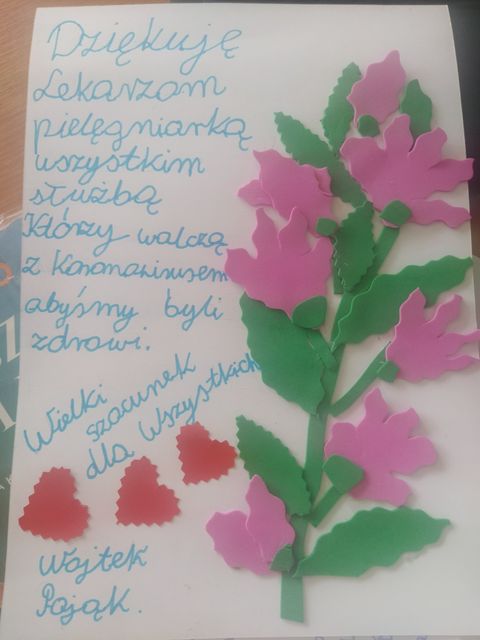 Dziękuję
Lekarzom
pielęgniarką
wszystkim
służbą
Którzy walczą
z Koronawirusem
abyśmy byli
zdrowi.
Wielki
szacunek
dla Wszystkich
Wojtek
Pająk.